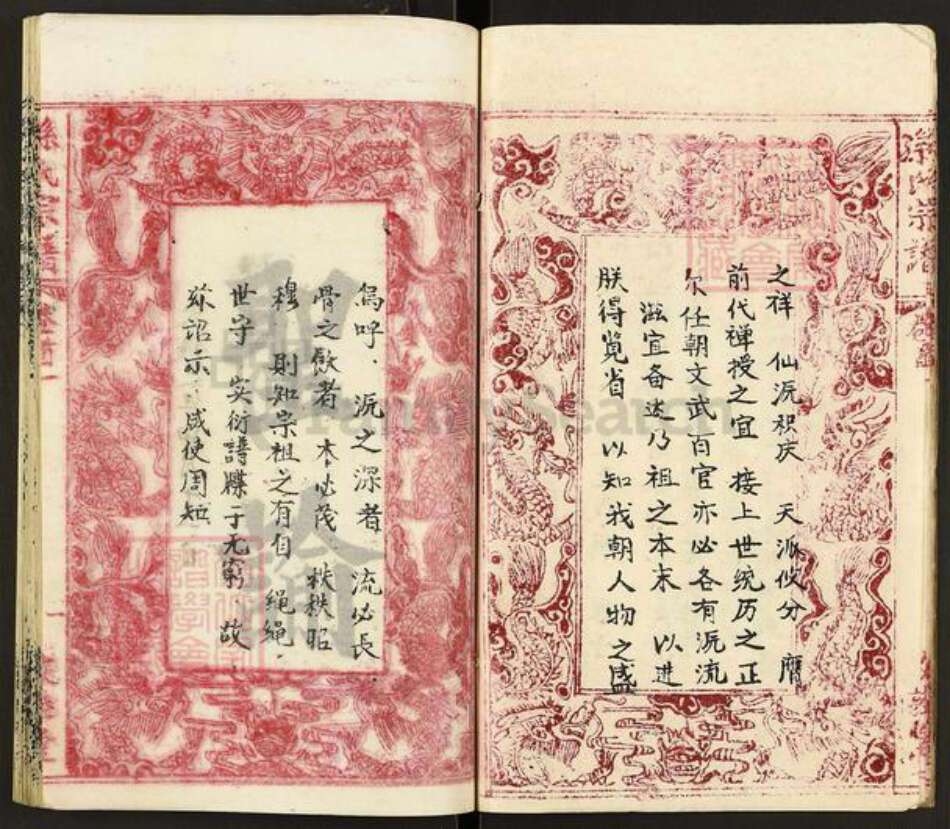 之祥 仙源积庆 天派攸分 膺
前代禅授之宜 接上世统历之正
尔任朝文武百官亦必各有源流
滋宜备述乃祖之本末 以进
朕得览省 以知我朝人物之盛
乌呼、源之深者 流必长
骨之 者 本必茂 秩秩昭
穆 则知宗祖之有自 绳绳
世守 实衍谱牒于无穷、故
兹诏示 咸使周知
氏宗譜
氏宗譜
FamilySearch